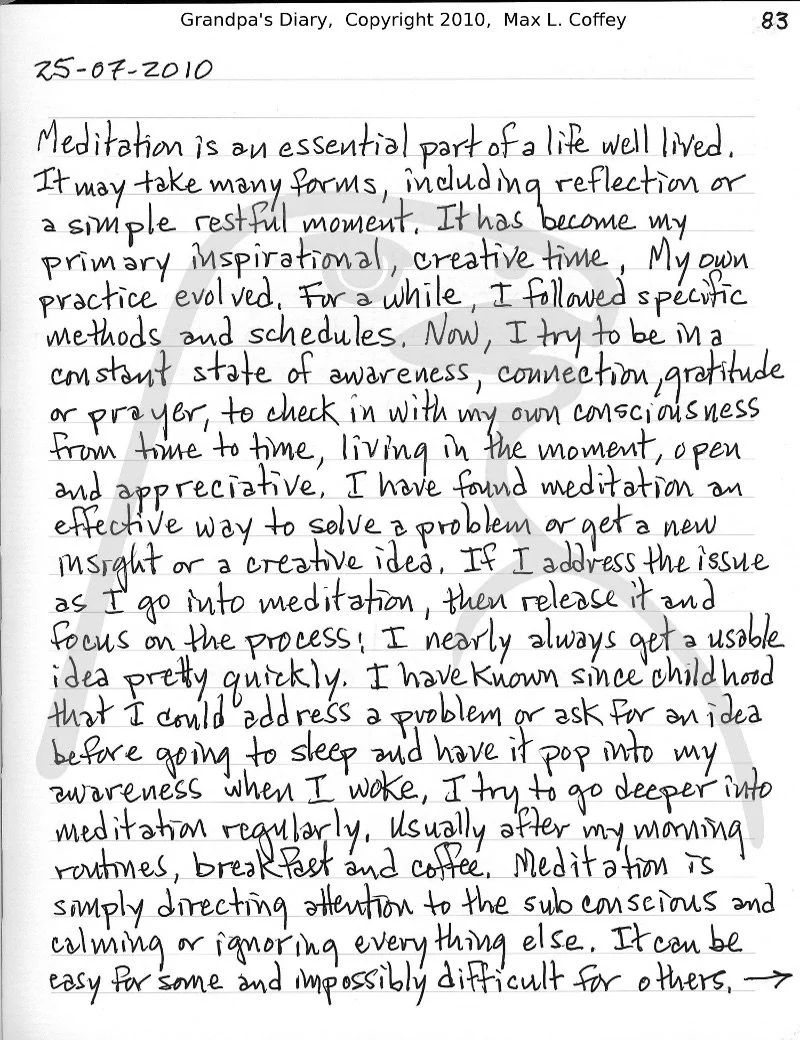 Grandpa's Diary, Copyright 2010, Max L. Coffey
83
25-07-2010
Meditation is an essential part of a life well lived.
It may take many forms, including reflection or
a simple restful moment. It has become my
primary inspirational, creative time. My own
practice evolved. For a while, I followed specific
methods and schedules. Now, I try to be in a
constant state of awareness, connection, gratitude
or prayer, to check in with my own consciousness
from time to time, living in the moment, open
and appreciative. I have found meditation an
effective way to solve a problem or get a new
insight or a creative idea. If I address the issue
as I go into meditation, then release it and
focus on the process; I nearly always get a usable
idea pretty quickly. I have known since childhood
that I could address a problem or ask for an idea
before going to sleep and have it pop into my
awareness when I woke. I try to go deeper into
meditation regularly. Usually after my morning
routines, breakfast and coffee. Meditation is
simply directing attention to the subconscious and
calming or ignoring everything else. It can be
easy for some and impossibly difficult for others. →